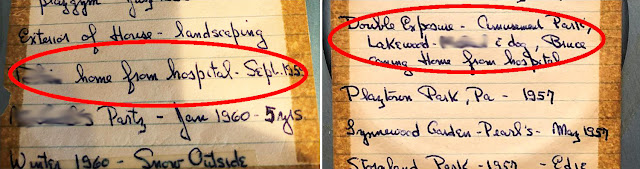 playgym
Exterior of House - landscaping
home from hospital - Sept. 195
Party - Jan 1960 - 5 yrs
Winter 1960 - Snow Outside
Double Exposure - Amusement Park,
Lakewood - & dog, Bruce
coming Home from hospital
Playtown Park, Pa - 1957
Lynnewood Garden - Pearl's - May 1957
Storyland Park - 1957 - Edie